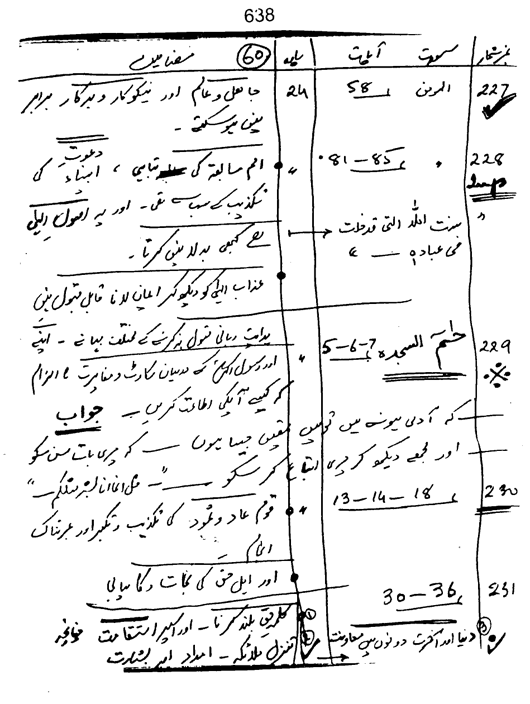 638
نمبر شمار سورت آیات پارہ مضامین 60
227 المومن 58 24 جاہل و عالم اور نیکوکار و بدکار برابر
نہیں ہو سکتے ۔
228 " 81-85 " امم سابقہ کی تباہی ، دعوت انبیاء کی
تکذیب کے سبب تھی ۔ اور یہ اصول الٰہی
" سنت اللہ التی قد خلت
فی عبادہ ہے کبھی بدلا نہیں کرتا ۔
عذاب الٰہی کو دیکھ کر ایمان لانا قابل قبول نہیں
229 حٰمٓ السجدہ 5-6-7 " ہدایت ربانی قبول نہ کرنے کے مختلف بہانے ۔ اپنے
اور رسول اکرم کے درمیان رکاوٹ و مغایرت کا الزام
کہ کیسے آپکی اطاعت کریں جواب
کہ آدمی ہونے میں تو میں تمہیں جیسا ہوں — کہ میری بات سن سکو
اور مجھے دیکھ کر میری اتباع کر سکو — " قل انما انا بشر مثلکم "
230 13-14-18 " قوم عاد و ثمود کی تکذیب و تکبر اور عبرتناک
انجام
اور اہل حق کی نجات و کامیابی
231 30-36 کلمہ حق بلند کرنا ۔ اور اسپر استقامت
دنیا اور آخرت دونوں میں معاونت تنزل ملائکہ ۔ امداد اور بشارت